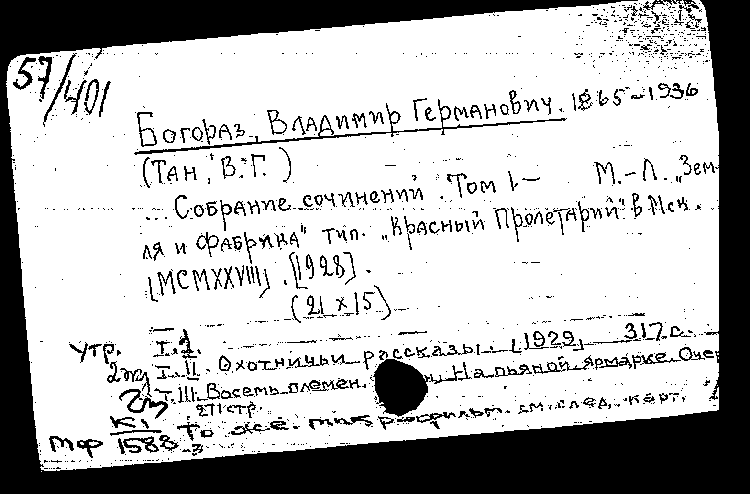 57/401
Богораз, Владимир Германович. 1865-1936
(Тан, В.Г.)
... Собрание сочинений. Том I- М.-Л. „Зем-
ля и Фабрика" тип. „Красный Пролетарий" в Мск.
[MCMXXVIII]. [1928].
(21 x 15)
утр. I.1.
2жд I.II. Охотничьи рассказы. [1929, 317с.
2эт Т.III. Восемь племен. На пьяной ярмарке. Очер
271стр.
К1
мф 1588-3 То же. микрофильм. см. след. карт.